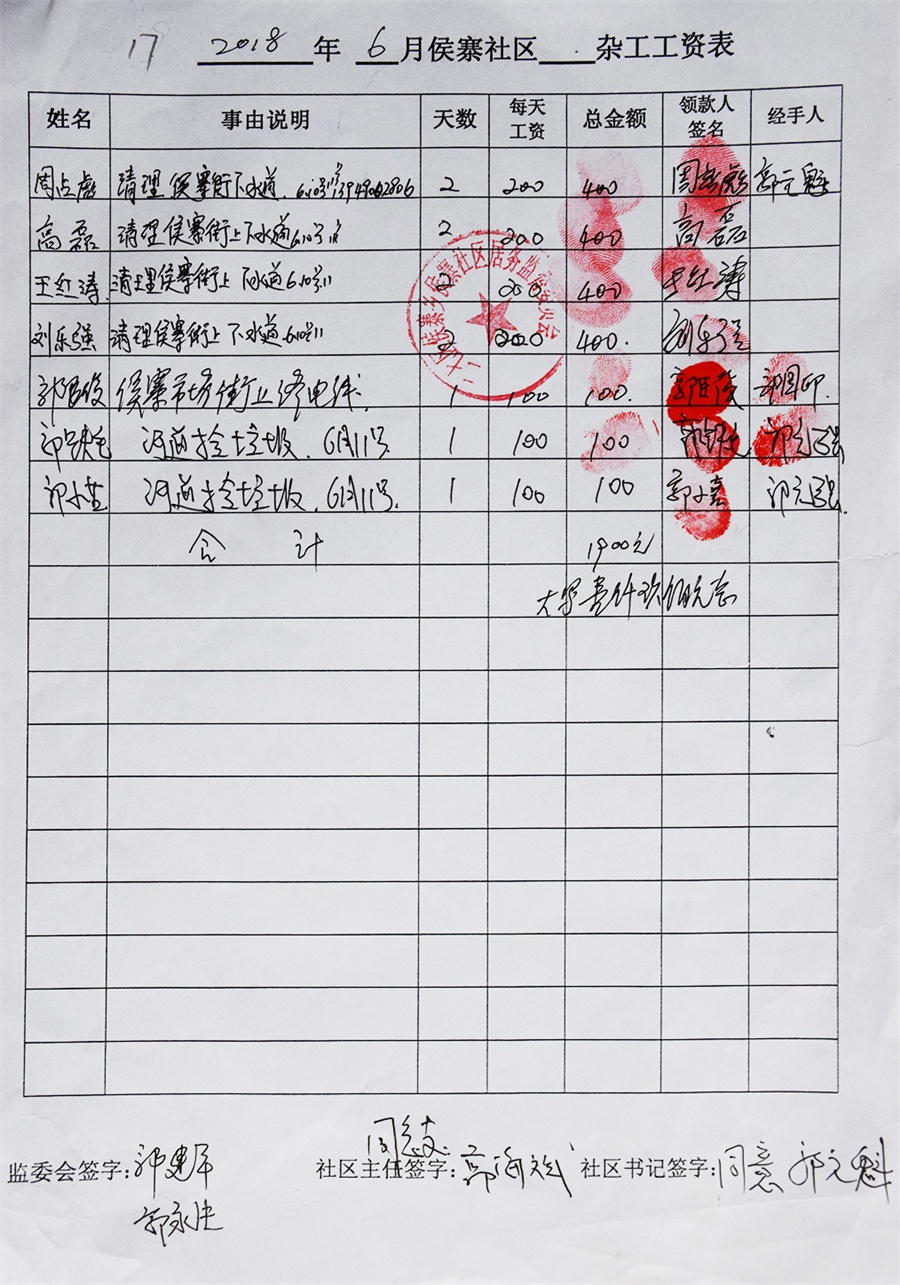 17 2018 年 6 月侯寨社区 杂工工资表
姓名 事由说明 天数 每天工资 总金额 领款人签名 经手人
周占彪 清理侯寨街下水道. 2 200 400 周占彪 郭元魁
高磊 清理侯寨街上下水道6.10号11 2 200 400 高磊
王红涛 清理侯寨街上下水道6.10号11 2 200 400 王红涛
刘乐强 清理侯寨街上下水道6.10号11 2 200 400. 刘乐强
侯寨市场街上修电线. 1 100 100.
河道捡垃圾. 6月11号 1 100 100
河道捡垃圾. 6月11号. 1 100 100
合计 1900元
大写壹仟玖佰元
二七区侯寨乡侯寨社区居务监督委员会
监委会签字: 郭建军 社区主任签字: 同意 社区书记签字: 同意 郭元魁
郭永